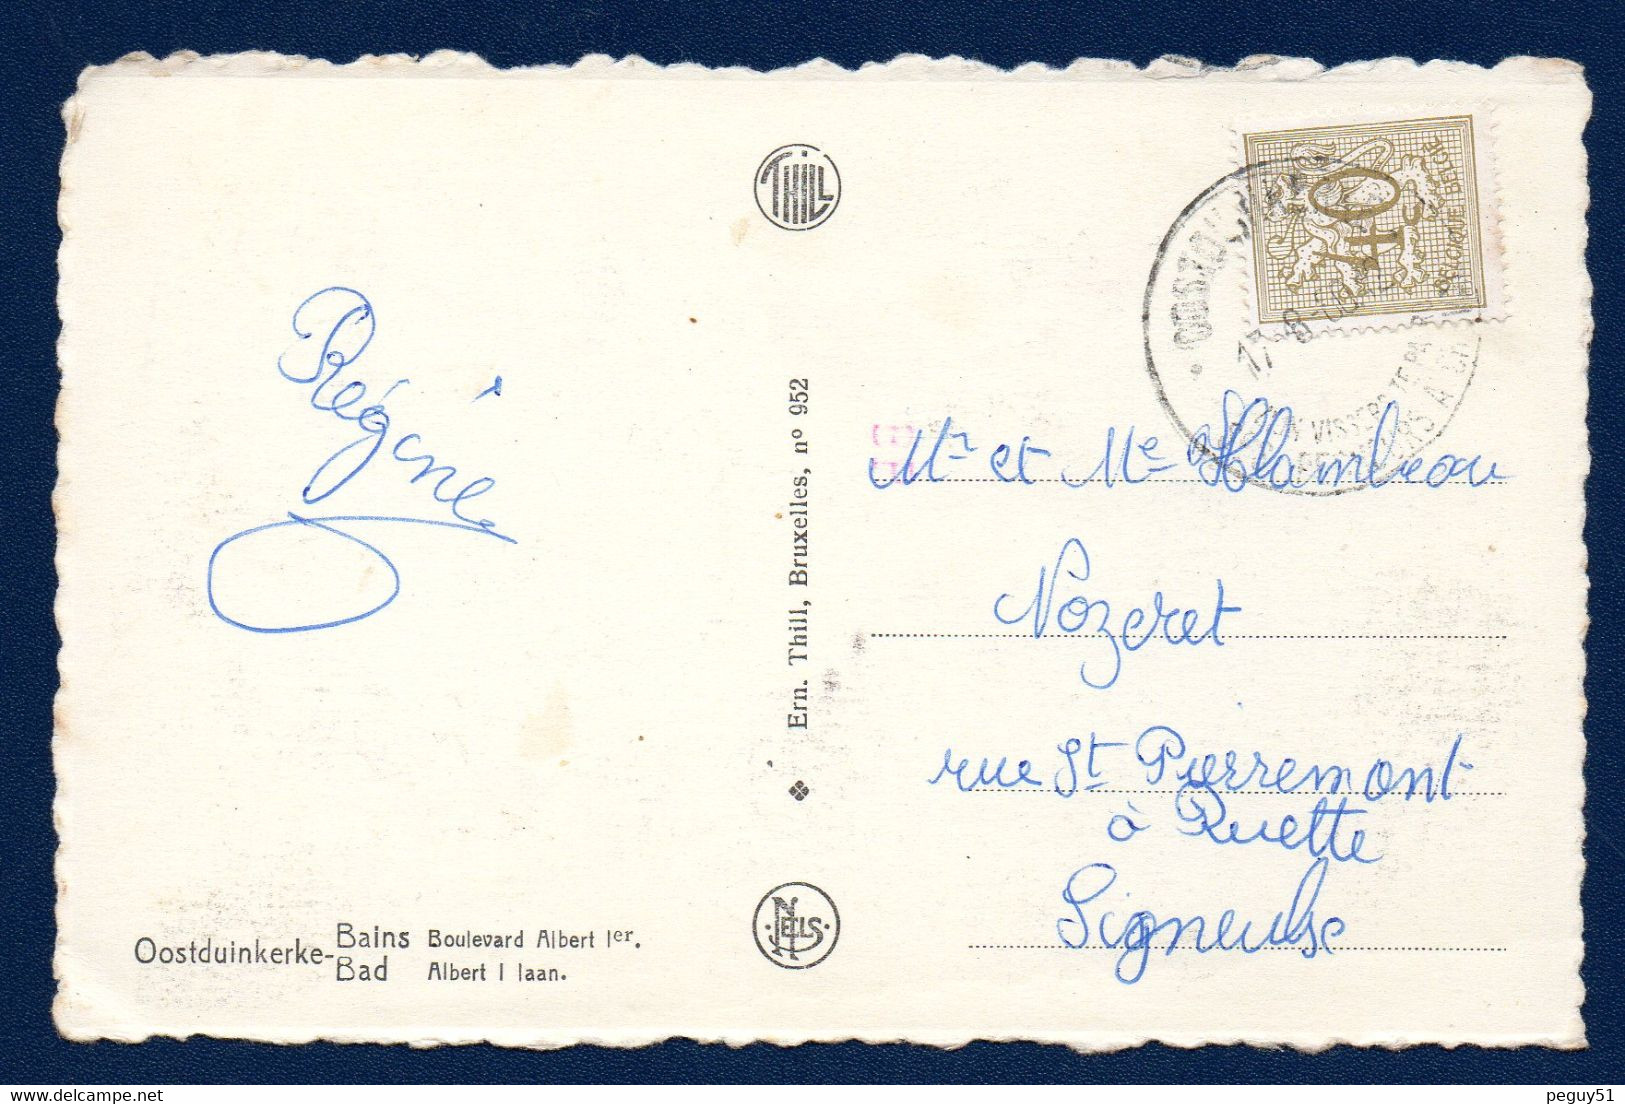 THILL
40 c
BELGIQUE BELGIE
17 -8-
VISSERS
Régine
Mr et Me Flambeau
Nozeret
rue St Pierremont
à Ruette
Signeulx
Ern. Thill, Bruxelles, nº 952
NELS
Oostduinkerke-Bains Boulevard Albert Ier.
Bad Albert I laan.
peguy51